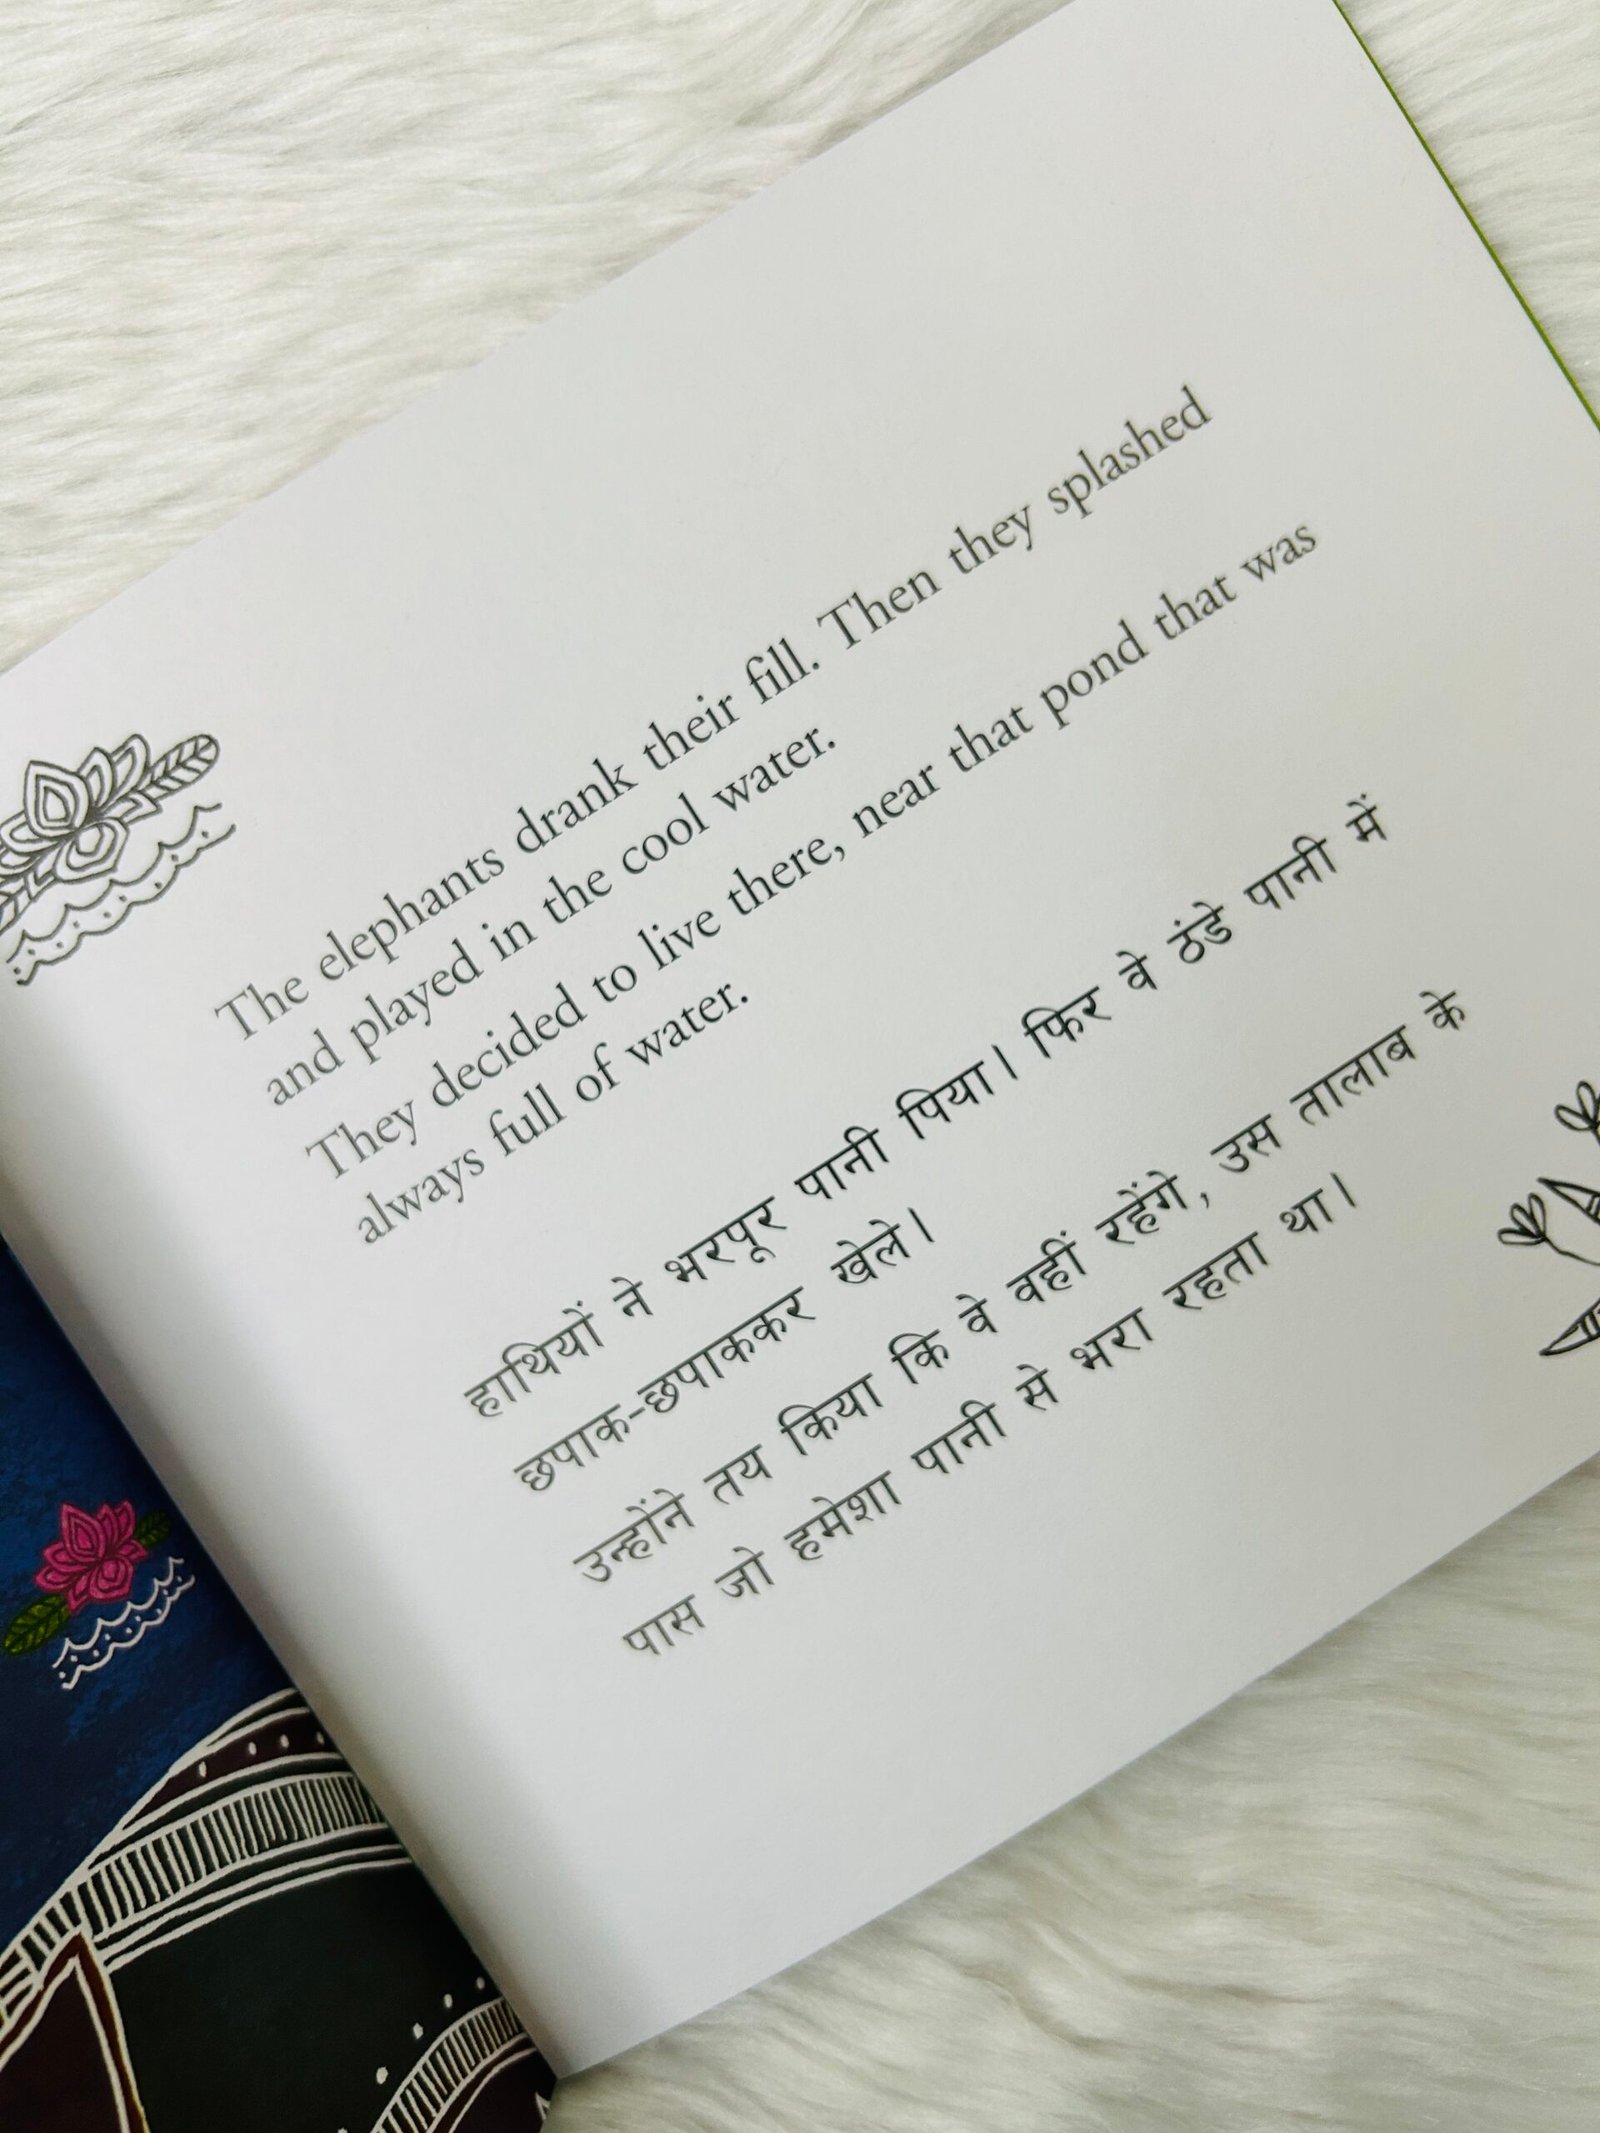 The elephants drank their fill. Then they splashed
and played in the cool water.
They decided to live there, near that pond that was
always full of water.
हाथियों ने भरपूर पानी पिया। फिर वे ठंडे पानी में
छपाक-छपाककर खेले।
उन्होंने तय किया कि वे वहीं रहेंगे, उस तालाब के
पास जो हमेशा पानी से भरा रहता था।